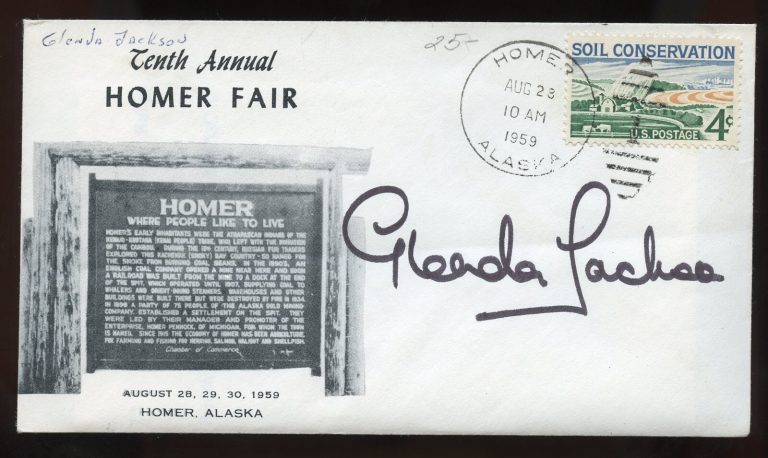 Glenda Jackson
25-
Tenth Annual
HOMER FAIR
HOMER
ALASKA
AUG 28
10 AM
1959
SOIL CONSERVATION
U.S. POSTAGE 4¢
Glenda Jackson
HOMER
WHERE PEOPLE LIKE TO LIVE
HOMER'S EARLY INHABITANTS WERE THE ATHAPASCAN INDIANS OF THE
KENAIO-KHOTANA (KENAI PEOPLE) TRIBE, WHO LEFT WITH THE MIGRATION
OF THE CARIBOU. DURING THE 19TH CENTURY, RUSSIAN FUR TRADERS
EXPLORED THIS KACHEMAK (SMOKY) BAY COUNTRY - SO NAMED FOR
THE SMOKE FROM BURNING COAL SEAMS. IN THE 1890'S, AN
ENGLISH COAL COMPANY OPENED A MINE NEAR HERE AND SOON
A RAILROAD WAS BUILT FROM THE MINE TO A DOCK AT THE END
OF THE SPIT, WHICH OPERATED UNTIL 1907, SUPPLYING COAL TO
WHALERS AND ORIENT GOING STEAMERS. WAREHOUSES AND OTHER
BUILDINGS WERE BUILT THERE BUT WERE DESTROYED BY FIRE IN
IN 1896 A PARTY OF 75 PEOPLE OF THE ALASKA GOLD MINING
COMPANY, ESTABLISHED A SETTLEMENT ON THE SPIT. THEY
WERE LED BY THEIR MANAGER AND PROMOTER OF THE
ENTERPRISE, HOMER PENNOCK, OF MICHIGAN, FOR WHOM THE TOWN
IS NAMED. SINCE 1915 THE ECONOMY OF HOMER HAS BEEN AGRICULTURE,
FOX FARMING AND FISHING FOR HERRING, SALMON, HALIBUT AND SHELLFISH.
Chamber of Commerce
AUGUST 28, 29, 30, 1959
HOMER, ALASKA